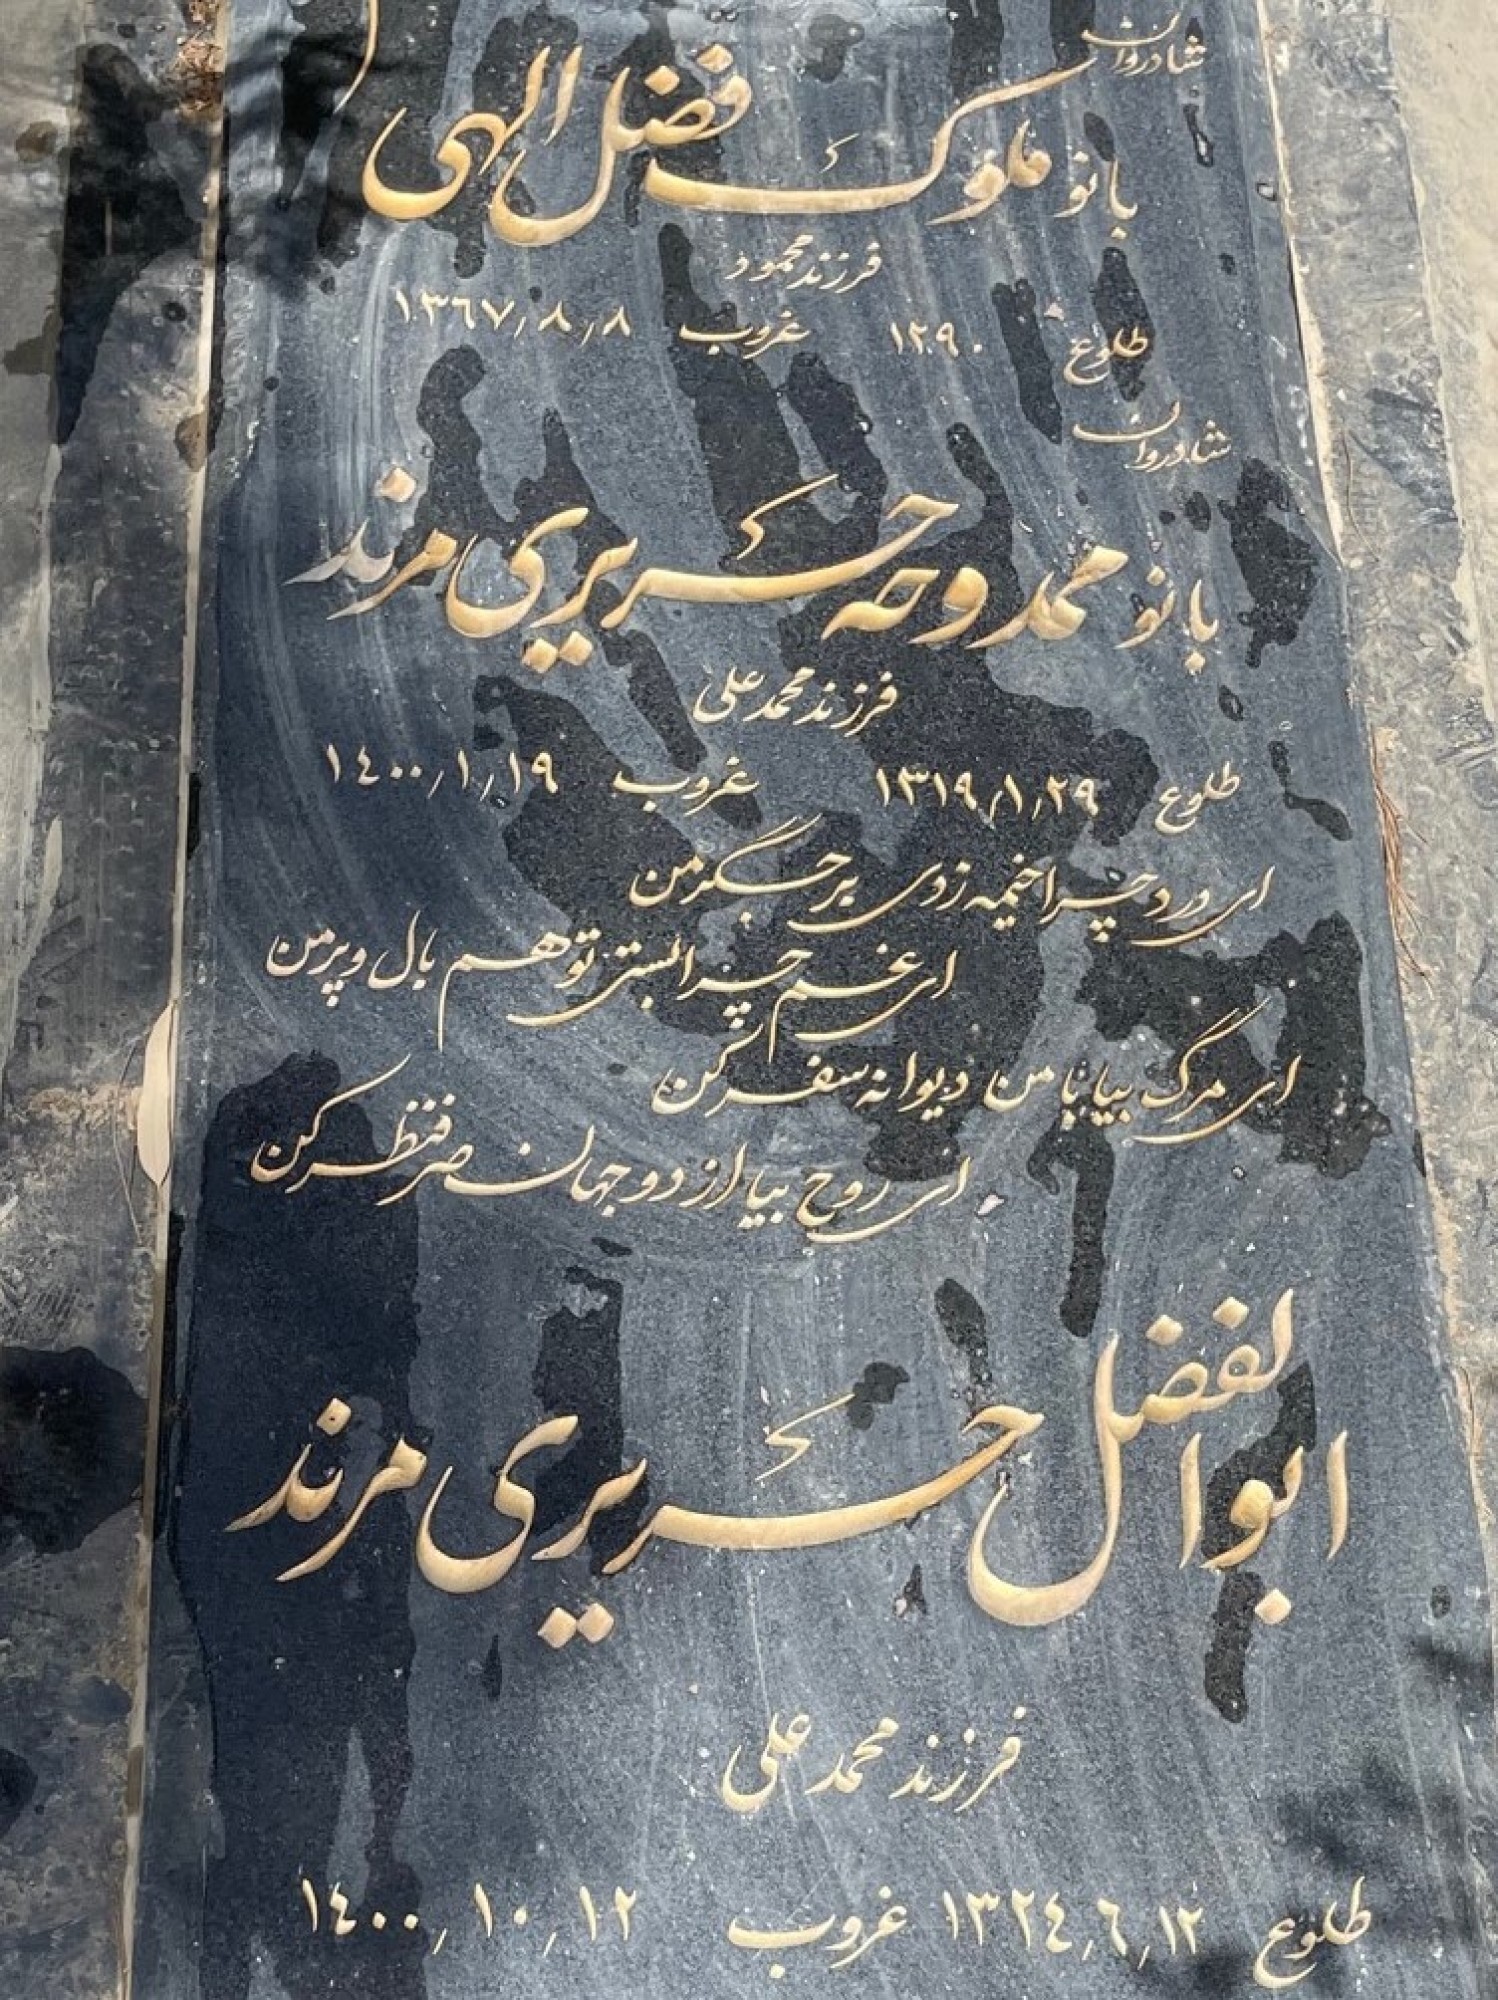 شادروان
بانو ملوک فضل الهی
فرزند محمود
طلوع ۱۲۹۰ غروب ۱۳۶۷/۸/۸
شادروان
بانو ممدوحه حریری مرند
فرزند محمد علی
طلوع ۱۳۱۹/۱/۲۹ غروب ۱۴۰۰/۱/۱۹
ای درد چرا خیمه زدی بر جگر من
ای غم چرا بستی تو هم بال و پر من
ای مرگ بیا با من دیوانه سفر کن
ای روح بیا از دو جهان صرفنظر کن
ابوالفضل حریری مرند
فرزند محمد علی
طلوع ۱۳۲۴/۶/۱۲ غروب ۱۴۰۰/۱۰/۱۲